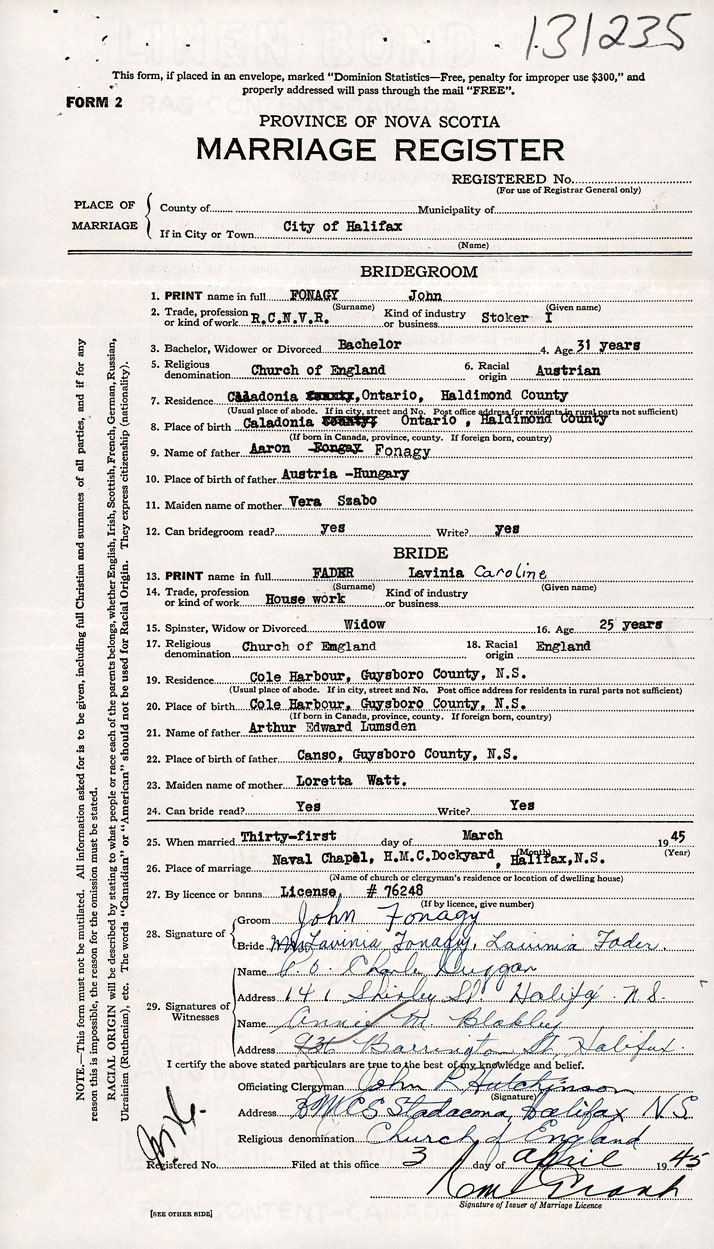 131235
This form, if placed in an envelope, marked "Dominion Statistics—Free, penalty for improper use $300," and
properly addressed will pass through the mail "FREE".
FORM 2
PROVINCE OF NOVA SCOTIA
MARRIAGE REGISTER
REGISTERED No.
(For use of Registrar General only)
PLACE OF MARRIAGE
County of Municipality of
If in City or Town City of Halifax
(Name)
BRIDEGROOM
1. PRINT name in full FONAGY John
(Surname) (Given name)
2. Trade, profession or kind of work R.C.N.V.R. Kind of industry or business Stoker I
3. Bachelor, Widower or Divorced Bachelor 4. Age 31 years
5. Religious denomination Church of England 6. Racial origin Austrian
7. Residence Caladonia county, Ontario, Haldimond County
(Usual place of abode. If in city, street and No. Post office address for residents in rural parts not sufficient)
8. Place of birth Caladonia county, Ontario , Haldimond County
(If born in Canada, province, county. If foreign born, country)
9. Name of father Aaron Fongay Fonagy
10. Place of birth of father Austria -Hungary
11. Maiden name of mother Vera Szabo
12. Can bridegroom read? yes Write? yes
BRIDE
13. PRINT name in full FADER Lavinia Caroline
(Surname) (Given name)
14. Trade, profession or kind of work House work Kind of industry or business
15. Spinster, Widow or Divorced Widow 16. Age 25 years
17. Religious denomination Church of England 18. Racial origin England
19. Residence Cole Harbour, Guysboro County, N.S.
(Usual place of abode. If in city, street and No. Post office address for residents in rural parts not sufficient)
20. Place of birth Cole Harbour, Guysboro County, N.S.
(If born in Canada, province, county. If foreign born, country)
21. Name of father Arthur Edward Lumsden
22. Place of birth of father Canso, Guysboro County, N.S.
23. Maiden name of mother Loretta Watt.
24. Can bride read? Yes Write? Yes
25. When married Thirty-first day of March 1945
(Month) (Year)
26. Place of marriage Naval Chapel, H.M.C.Dockyard , Halifax, N.S.
(Name of church or clergyman's residence or location of dwelling house)
27. By licence or banns License, # 76248
(If by licence, give number)
28. Signature of Groom John Fonagy
Bride Lavinia Fonagy, Lavinia Fader.
29. Signatures of Witnesses
Name Charle Duggan
Address 141 Shirley St. Halifax N.S.
Name Annie M Blakley
Address Barrington St, Halifax.
I certify the above stated particulars are true to the best of my knowledge and belief.
Officiating Clergyman John R Hutchinson
(Signature)
Address HMCS Stadacona, Halifax N.S.
Religious denomination Church of England
Registered No. Filed at this office 3 day of April 1945
Signature of Issuer of Marriage Licence
[SEE OTHER SIDE]
NOTE.—This form must not be mutilated. All information asked for is to be given, including full Christian and surnames of all parties, and if for any
reason this is impossible, the reason for the omission must be stated.
RACIAL ORIGIN will be described by stating to what people or race each of the parents belongs, whether English, Irish, Scottish, French, German, Russian,
Ukrainian (Ruthenian), etc. The words "Canadian" or "American" should not be used for Racial Origin. They express citizenship (nationality).